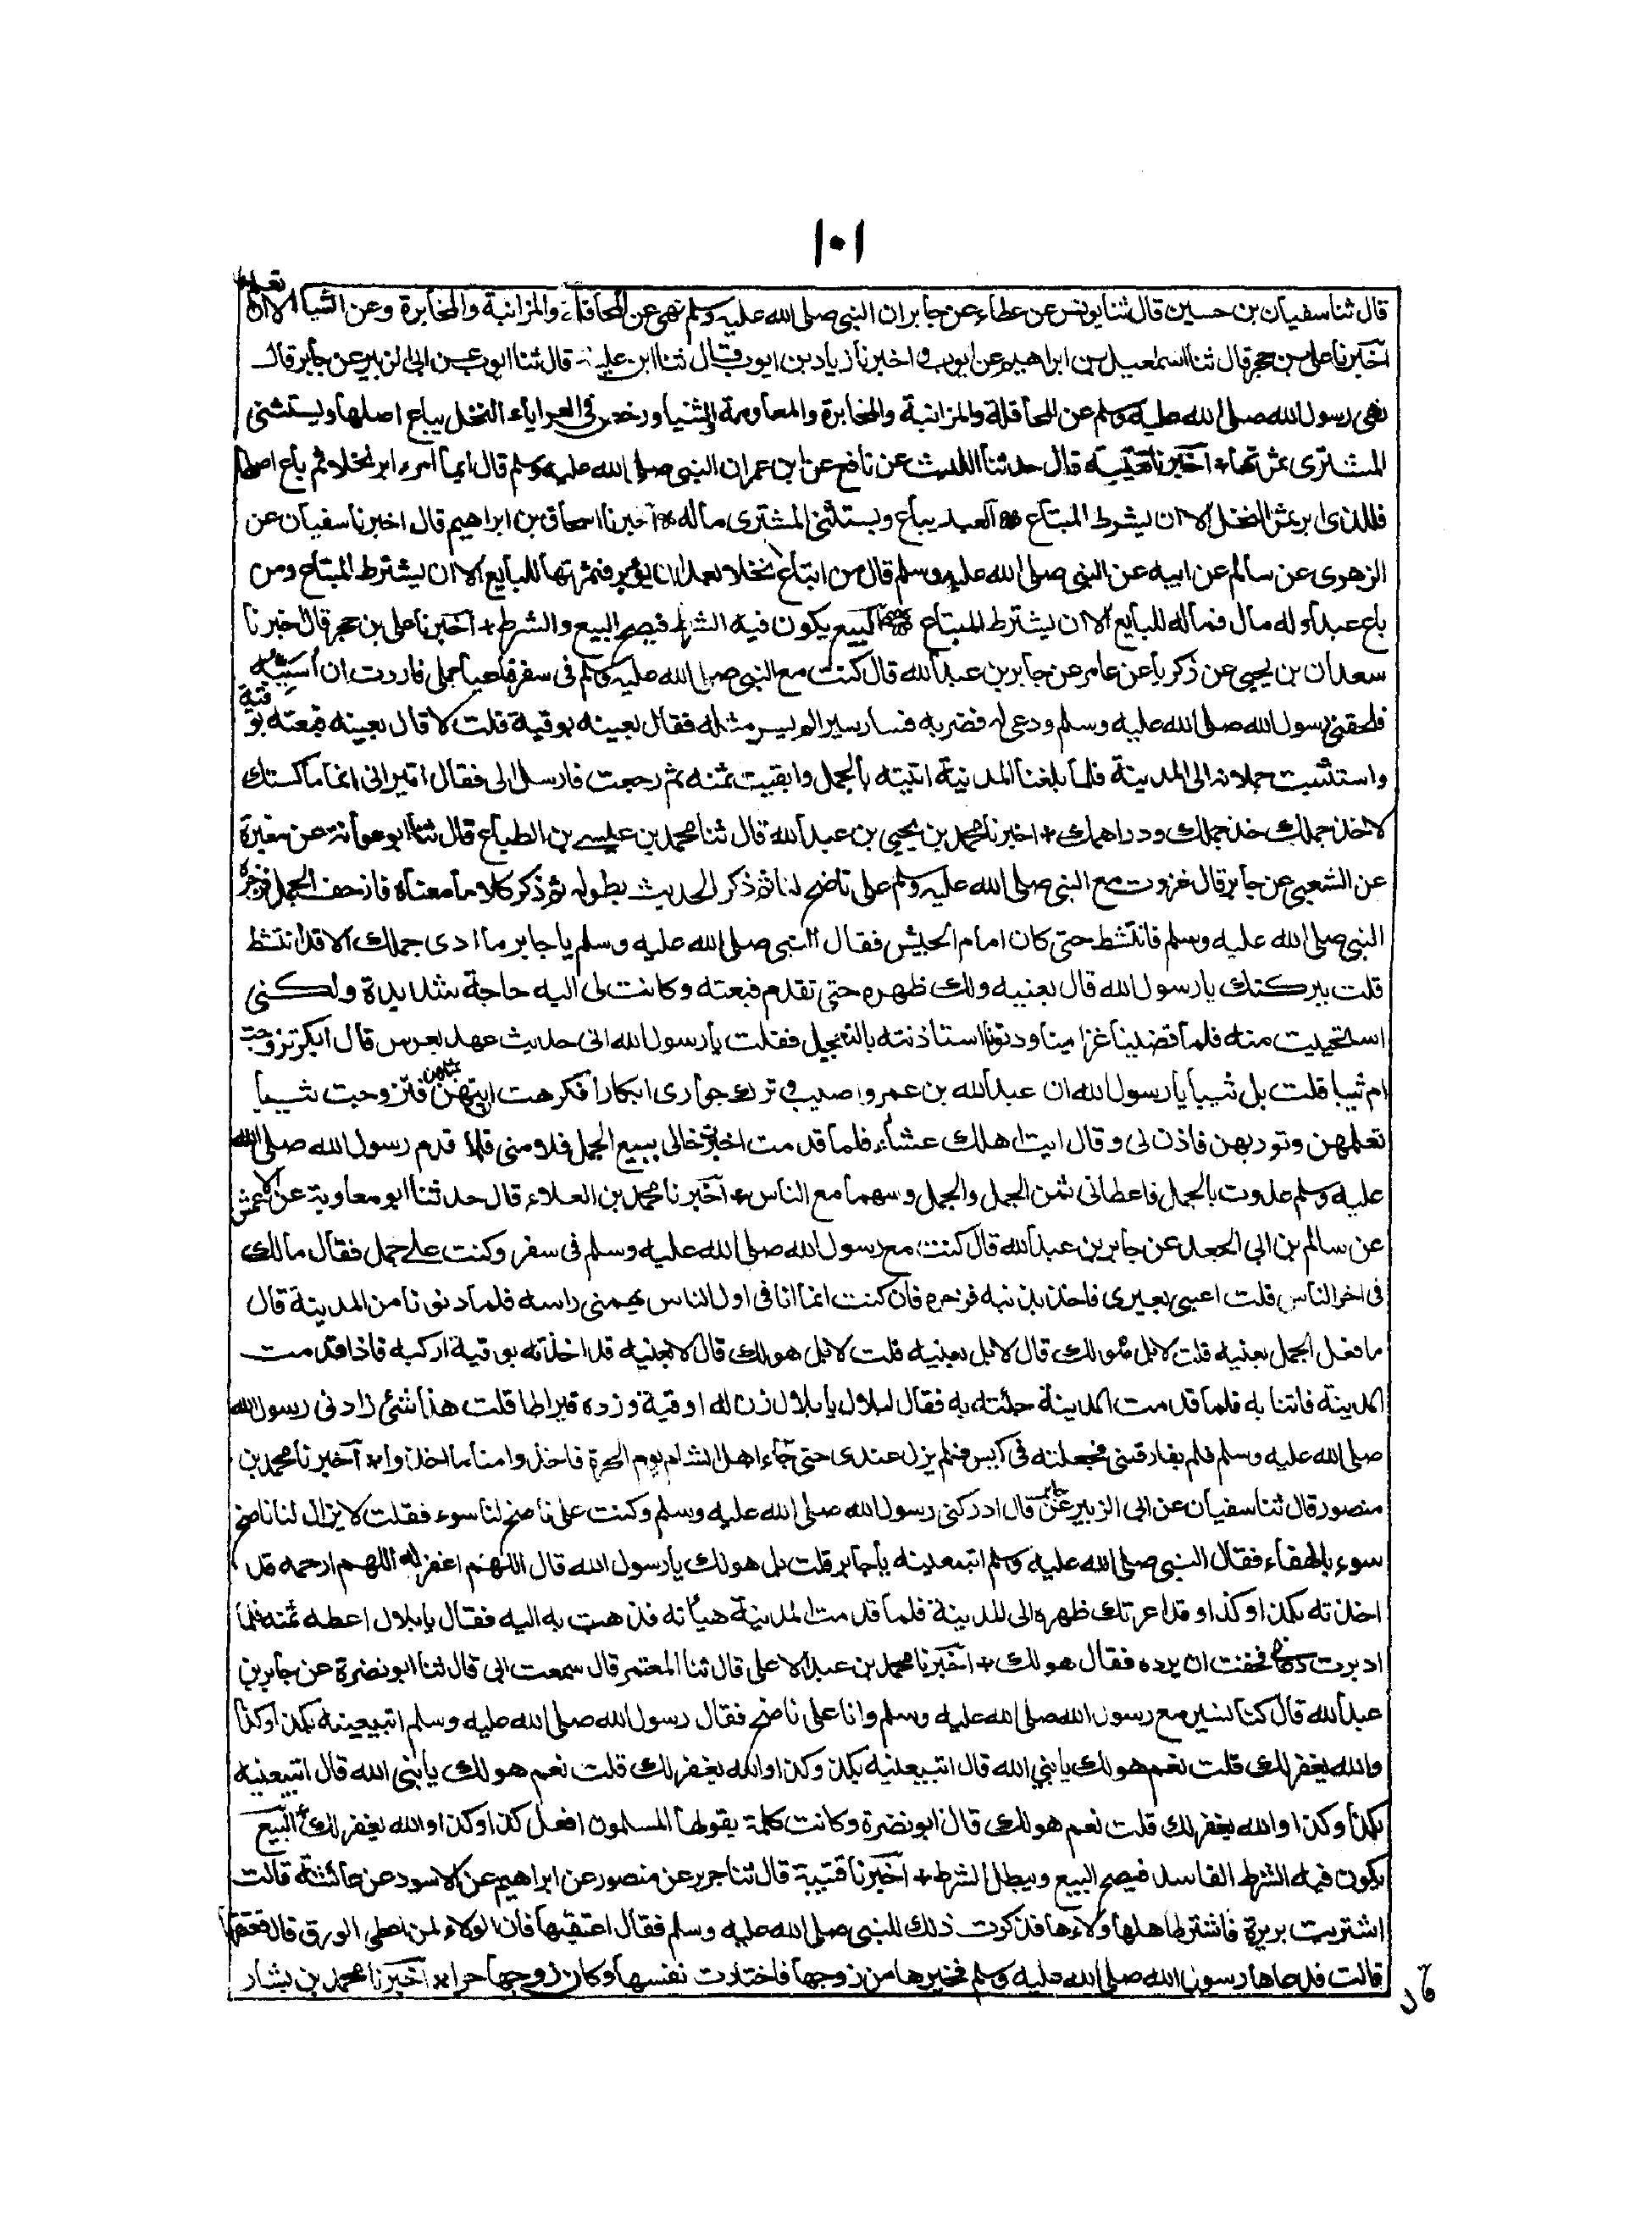 ١٠١
قال ثنا سفيان بن حسين قال ثنا يونس عن عطاء عن جابر ان النبي صلى الله عليه وسلم نهى عن المحاقلة والمزابنة والمخابرة وعن الثنيا الا ان تعلم
اخبرنا على بن حجر قال ثنا اسمعيل بن ابراهيم عن ايوب و اخبرنا زياد بن ايوب قال ثنا ابن علية قال ثنا ايوب عن ابى الزبير عن جابر قال
نهى رسول الله صلى الله عليه وسلم عن المحاقلة والمزابنة والمخابرة والمعاومة والثنيا ورخص فى العرايا، النخل يباع اصلها ويستثنى
المشترى ثمرتها + اخبرنا قتيبة قال حدثنا الليث عن نافع عن ابن عمر ان النبي صلى الله عليه وسلم قال ايما امرء ابر نخلا ثم باع اصلها
فللذى ابر ثمر النخل الا ان يشرط المبتاع العبد يباع ويستثنى المشترى ماله اخبرنا اسحاق بن ابراهيم قال اخبرنا سفيان عن
الزهرى عن سالم عن ابيه عن النبي صلى الله عليه وسلم قال من ابتاع نخلا بعد ان يؤبر فثمرتها للبايع الا ان يشترط المبتاع ومن
باع عبدا وله مال فماله للبايع الا ان يشترط المبتاع البيع يكون فيه الشرط فيصح البيع والشرط + اخبرنا على بن حجر قال اخبرنا
سعدان بن يحيى عن زكريا عن عامر عن جابر بن عبد الله قال كنت مع النبي صلى الله عليه وسلم فى سفر فاعيا جملى فاردت ان اسيبه
فلحقنى رسول الله صلى الله عليه وسلم ودعى له فضربه فسار سيرا لم يسر مثله فقال بعينه بوقية قلت لا قال بعينه فبعته بوقية
واستثنيت حملانه الى المدينة فلما بلغنا المدينة اتيته بالجمل وابقيت ثمنه ثم رجعت فارسل الى فقال اتیرانى انما ماكستك
لاخذ جملك خذ جملك ودراهمك + اخبرنا محمد بن يحيى بن عبد الله قال ثنا محمد بن عيسے بن الطباع قال ثنا ابو عوانة عن مغيرة
عن الشعبى عن جابر قال غزوت مع النبي صلى الله عليه وسلم على ناضح لنا ثم ذكر الحديث بطوله ثم ذكر كلاما معناه فازحف الجمل فزجره
النبي صلى الله عليه وسلم فانتشط حتى كان امام الجيش فقال النبي صلى الله عليه وسلم يا جابر ما ارى جملك الا قد انتشط
قلت ببركتك يا رسول الله قال بعنيه ولك ظهره حتى تقدم فبعته وكانت لى اليه حاجة شديدة ولكنى
استحييت منه فلما قضينا غزاتنا ودنونا استاذنته بالتعجيل فقلت يا رسول الله انى حديث عهد بعرس قال ابكر تزوجت
ام ثيبا قلت بل ثيبا يا رسول الله ان عبد الله بن عمرو اصيب و ترك جوارى ابكارا فكرهت ان اتيهن بمثلهن فتزوجت ثيبا
تعلمهن وتودبهن فاذن لى وقال ايت اهلك عشاء فلما قدمت اخبرت خالى ببيع الجمل فلامنى فلما قدم رسول الله صلى الله
عليه وسلم غدوت بالجمل فاعطانى ثمن الجمل والجمل وسهما مع الناس + اخبرنا محمد بن العلاء قال حدثنا ابو معاوية عن الاعمش
عن سالم بن ابى الجعد عن جابر بن عبد الله قال كنت مع رسول الله صلى الله عليه وسلم فى سفر وكنت على جمل فقال مالك
فى اخر الناس قلت اعيى بعيرى فاخذ بذنبه فزجره فان كنت انما انا فى اول الناس يهمنى راسه فلما دنونا من المدينة قال
ما فعل الجمل بعنيه قلت لا بل هو لك قال لا بل بعنيه قلت لا بل هو لك قال لا بعنيه قد اخذته بوقية اركبه فاذا قدمت
المدينة فاتنا به فلما قدمت المدينة جئته به فقال لبلال يا بلال زن له اوقية وزده قيراطا قلت هذا شئ زادنى رسول الله
صلى الله عليه وسلم فلم يفارقنى فجعلته فى كيس فلم يزل عندى حتى جاء اهل الشام يوم الحرة فاخذوا منا ما اخذوا + اخبرنا محمد بن
منصور قال ثنا سفيان عن ابى الزبير عن جابر قال ادركنى رسول الله صلى الله عليه وسلم وكنت على ناضح لنا سوء فقلت لا يزال لنا ناضح
سوء يا لهفاه فقال النبي صلى الله عليه وسلم اتبعينه يا جابر قلت بل هو لك يا رسول الله قال اللهم اغفر له اللهم ارحمه قد
اخذته بكذا وكذا وقد اعرتك ظهره الى المدينة فلما قدمت المدينة هيأته فذهبت به اليه فقال يا بلال اعطه ثمنه فلما
ادبرت دعانى فخفت ان يرده فقال هو لك + اخبرنا محمد بن عبد الاعلى قال ثنا المعتمر قال سمعت ابى قال ثنا ابو نضرة عن جابر بن
عبد الله قال كنا نسير مع رسول الله صلى الله عليه وسلم وانا على ناضح فقال رسول الله صلى الله عليه وسلم اتبيعينه بكذا وكذا
والله يغفر لك قلت نعم هو لك يا نبى الله قال اتبيعنيه بكذا وكذا والله يغفر لك قلت نعم هو لك يا نبى الله قال اتبيعنيه
بكذا وكذا والله يغفر لك قلت نعم هو لك قال ابو نضرة وكانت كلمة يقولها المسلمون افعل كذا وكذا والله يغفر لك البيع
يكون فيه الشرط الفاسد فيصح البيع ويبطل الشرط + اخبرنا قتيبة قال ثنا جرير عن منصور عن ابراهيم عن الاسود عن عائشة قالت
اشتريت بريرة فاشترط اهلها ولاءها فذكرت ذلك للنبى صلى الله عليه وسلم فقال اعتقيها فان الولاء لمن اعطى الورق قال فعتقتها
قالت فدعاها رسول الله صلى الله عليه وسلم فخيرها من زوجها فاختارت نفسها وكان زوجها حرا + اخبرنا محمد بن بشار